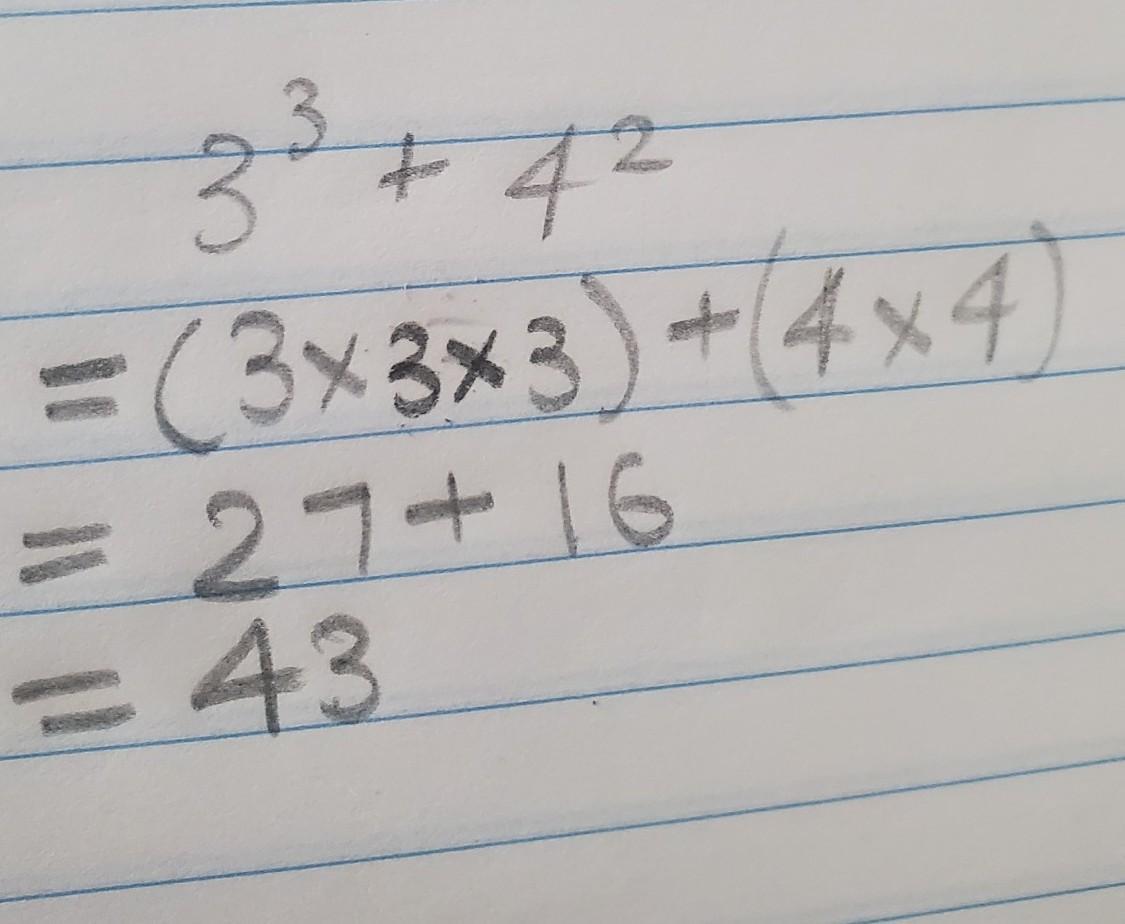 3³ + 4²
= (3×3×3) + (4×4)
= 27 + 16
= 43